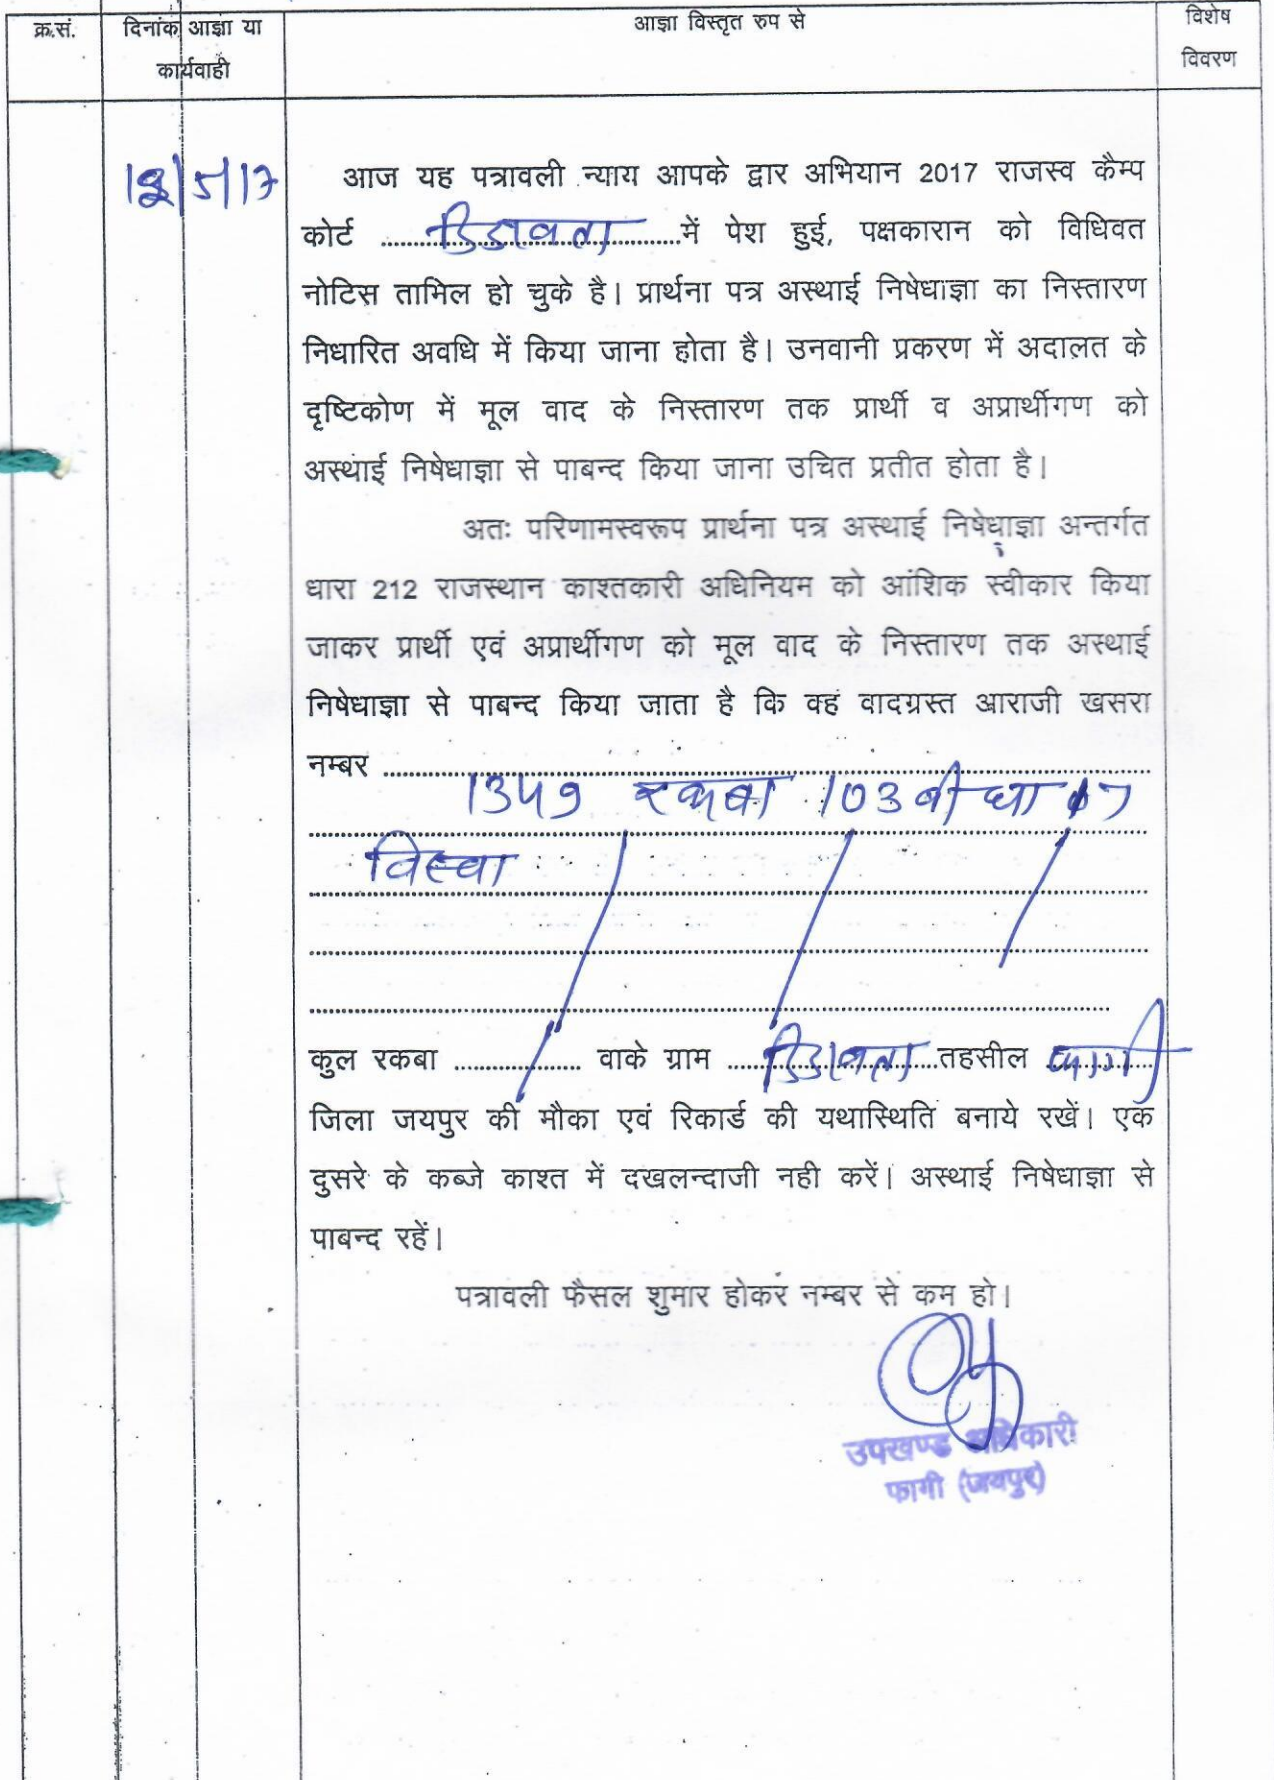 क्र.सं. दिनांक आज्ञा या आज्ञा विस्तृत रुप से विशेष
कार्यवाही विवरण
आज यह पत्रावली न्याय आपके द्वार अभियान 2017 राजस्व कैम्प
कोर्ट ........................में पेश हुई, पक्षकारान को विधिवत
नोटिस तामिल हो चुके है। प्रार्थना पत्र अस्थाई निषेधाज्ञा का निस्तारण
निधारित अवधि में किया जाना होता है। उनवानी प्रकरण में अदालत के
दृष्टिकोण में मूल वाद के निस्तारण तक प्रार्थी व अप्रार्थीगण को
अस्थाई निषेधाज्ञा से पाबन्द किया जाना उचित प्रतीत होता है।
अतः परिणामस्वरूप प्रार्थना पत्र अस्थाई निषेधाज्ञा अन्तर्गत
धारा 212 राजस्थान काश्तकारी अधिनियम को आंशिक स्वीकार किया
जाकर प्रार्थी एवं अप्रार्थीगण को मूल वाद के निस्तारण तक अस्थाई
निषेधाज्ञा से पाबन्द किया जाता है कि वह वादग्रस्त आराजी खसरा
नम्बर
1349 रकबा 103 बीघा 07
विस्वा
कुल रकबा .................. वाके ग्राम ........................तहसील फागी
जिला जयपुर की मौका एवं रिकार्ड की यथास्थिति बनाये रखें। एक
दुसरे के कब्जे काश्त में दखलन्दाजी नही करें। अस्थाई निषेधाज्ञा से
पाबन्द रहें।
पत्रावली फैसल शुमार होकर नम्बर से कम हो।
उपखण्ड अधिकारी
फागी (जयपुर)